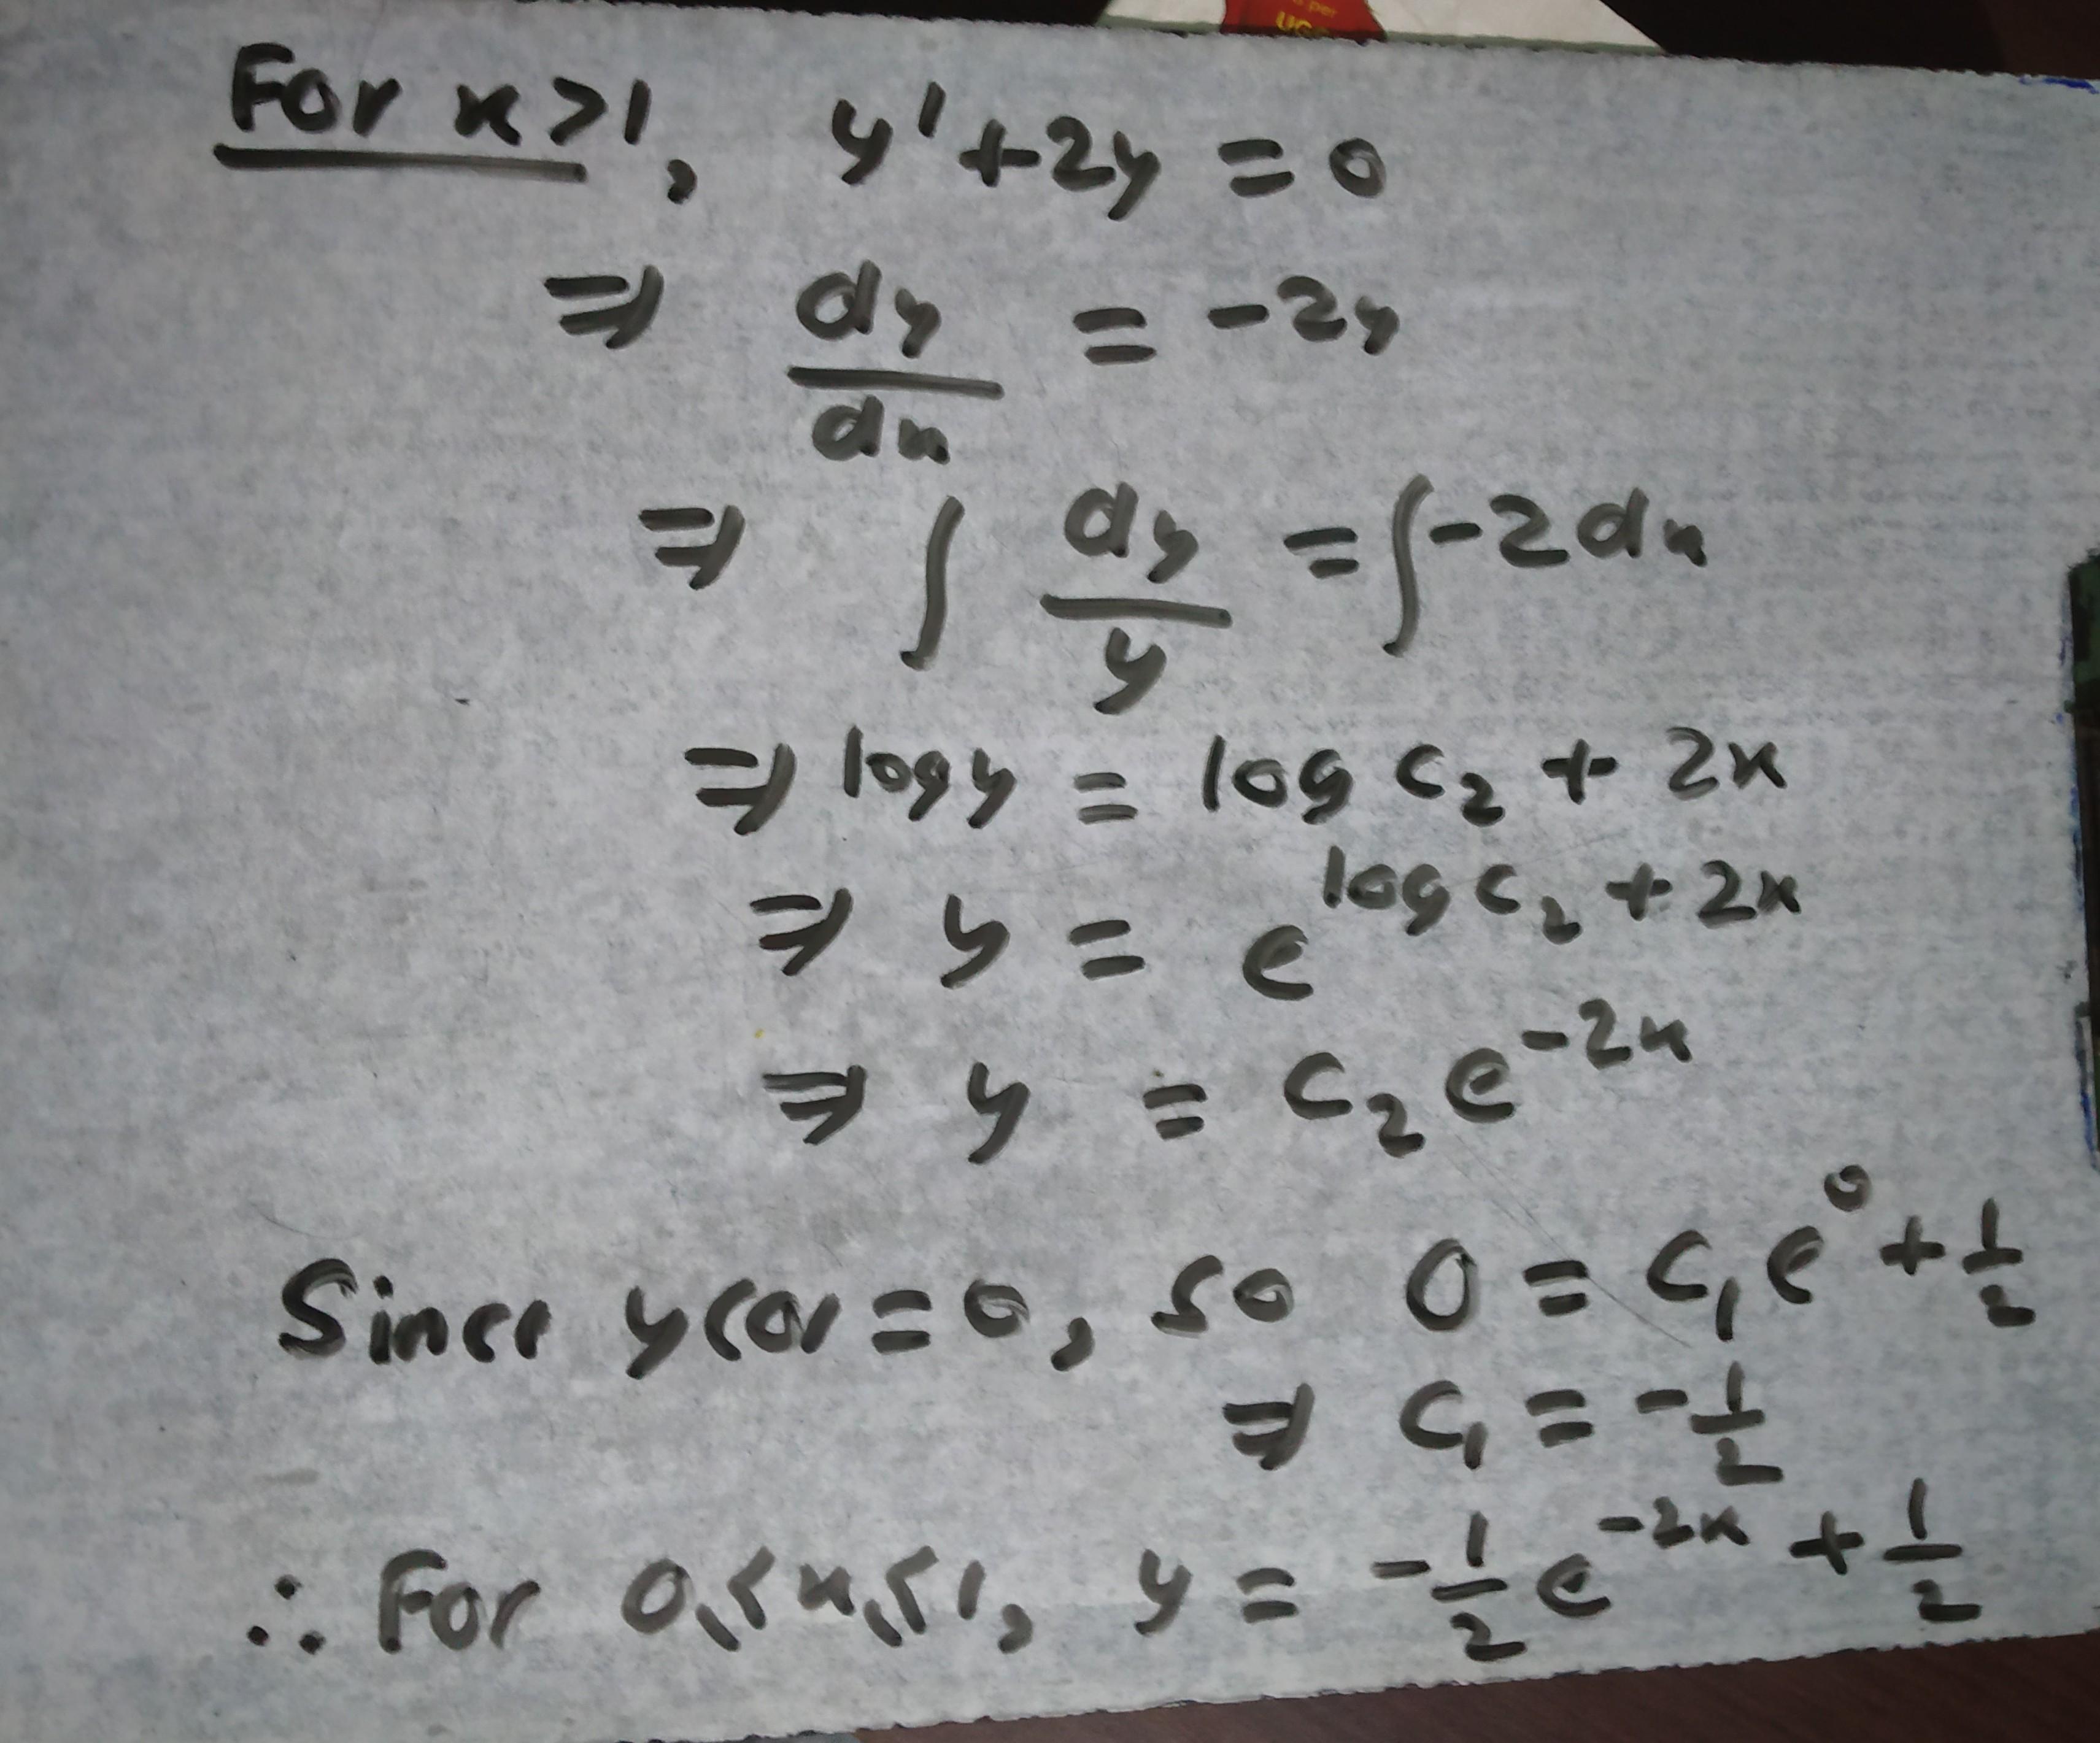 per
UG
For x>1, y'+2y = 0
⇒ dy/dx = -2y
⇒ ∫ dy/y = ∫-2dx
⇒ log y = log c₂ + 2x
⇒ y = e^(log c₂ + 2x)
⇒ y = c₂e^(-2x)
Since y(0) = 0, so 0 = c₁e⁰ + 1/2
⇒ c₁ = -1/2
∴ For 0≤x≤1, y = -1/2 e^(-2x) + 1/2